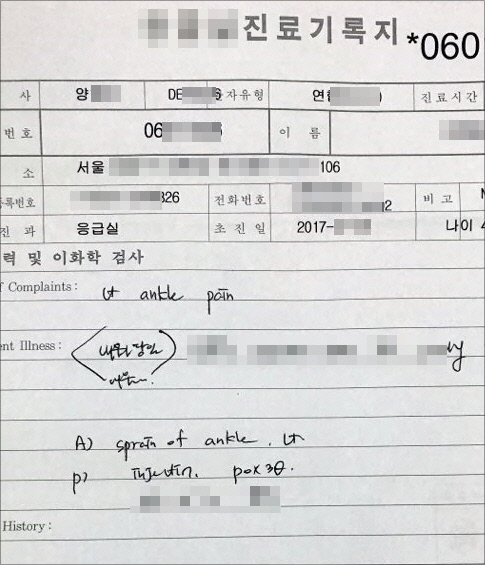 진료기록지 *060
사 양 DE 자유형 연 진료시간
번호 06 이 름
소 서울 106
등록번호 326 전화번호 2 비 고
진 과 응급실 초 진 일 2017- 나이 4
력 및 이화학 검사
f Complaints: Lt ankle pain
ent Illness: 내원 당일
A) sprain of ankle, Lt
p) injection. po x 3θ.
History: